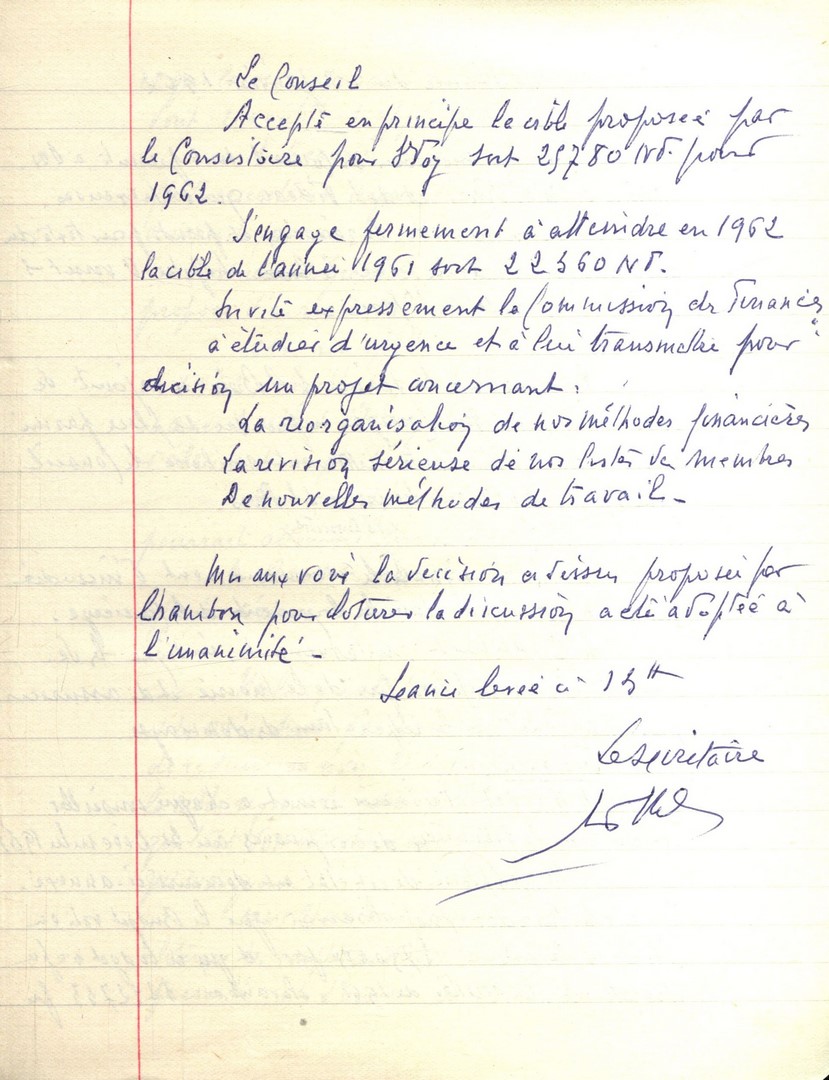 Le Conseil
Accepte en principe la cible proposée par
le Consistoire pour St Voy soit 25780 NF. pour
1962.
S'engage fermement à atteindre en 1962
la cible de l'année 1961 soit 22360 NF.
Invite expressément la Commission des Finances
à étudier d'urgence et à lui transmettre pour
décision un projet concernant :
La réorganisation de nos méthodes financières
La revision sérieuse de nos listes de membres
De nouvelles méthodes de travail -
Mis aux voix la décision ci dessus proposée par
Chambon pour cloturer la discussion a été adoptée à
l'unanimité -
Séance levée à
Le secrétaire